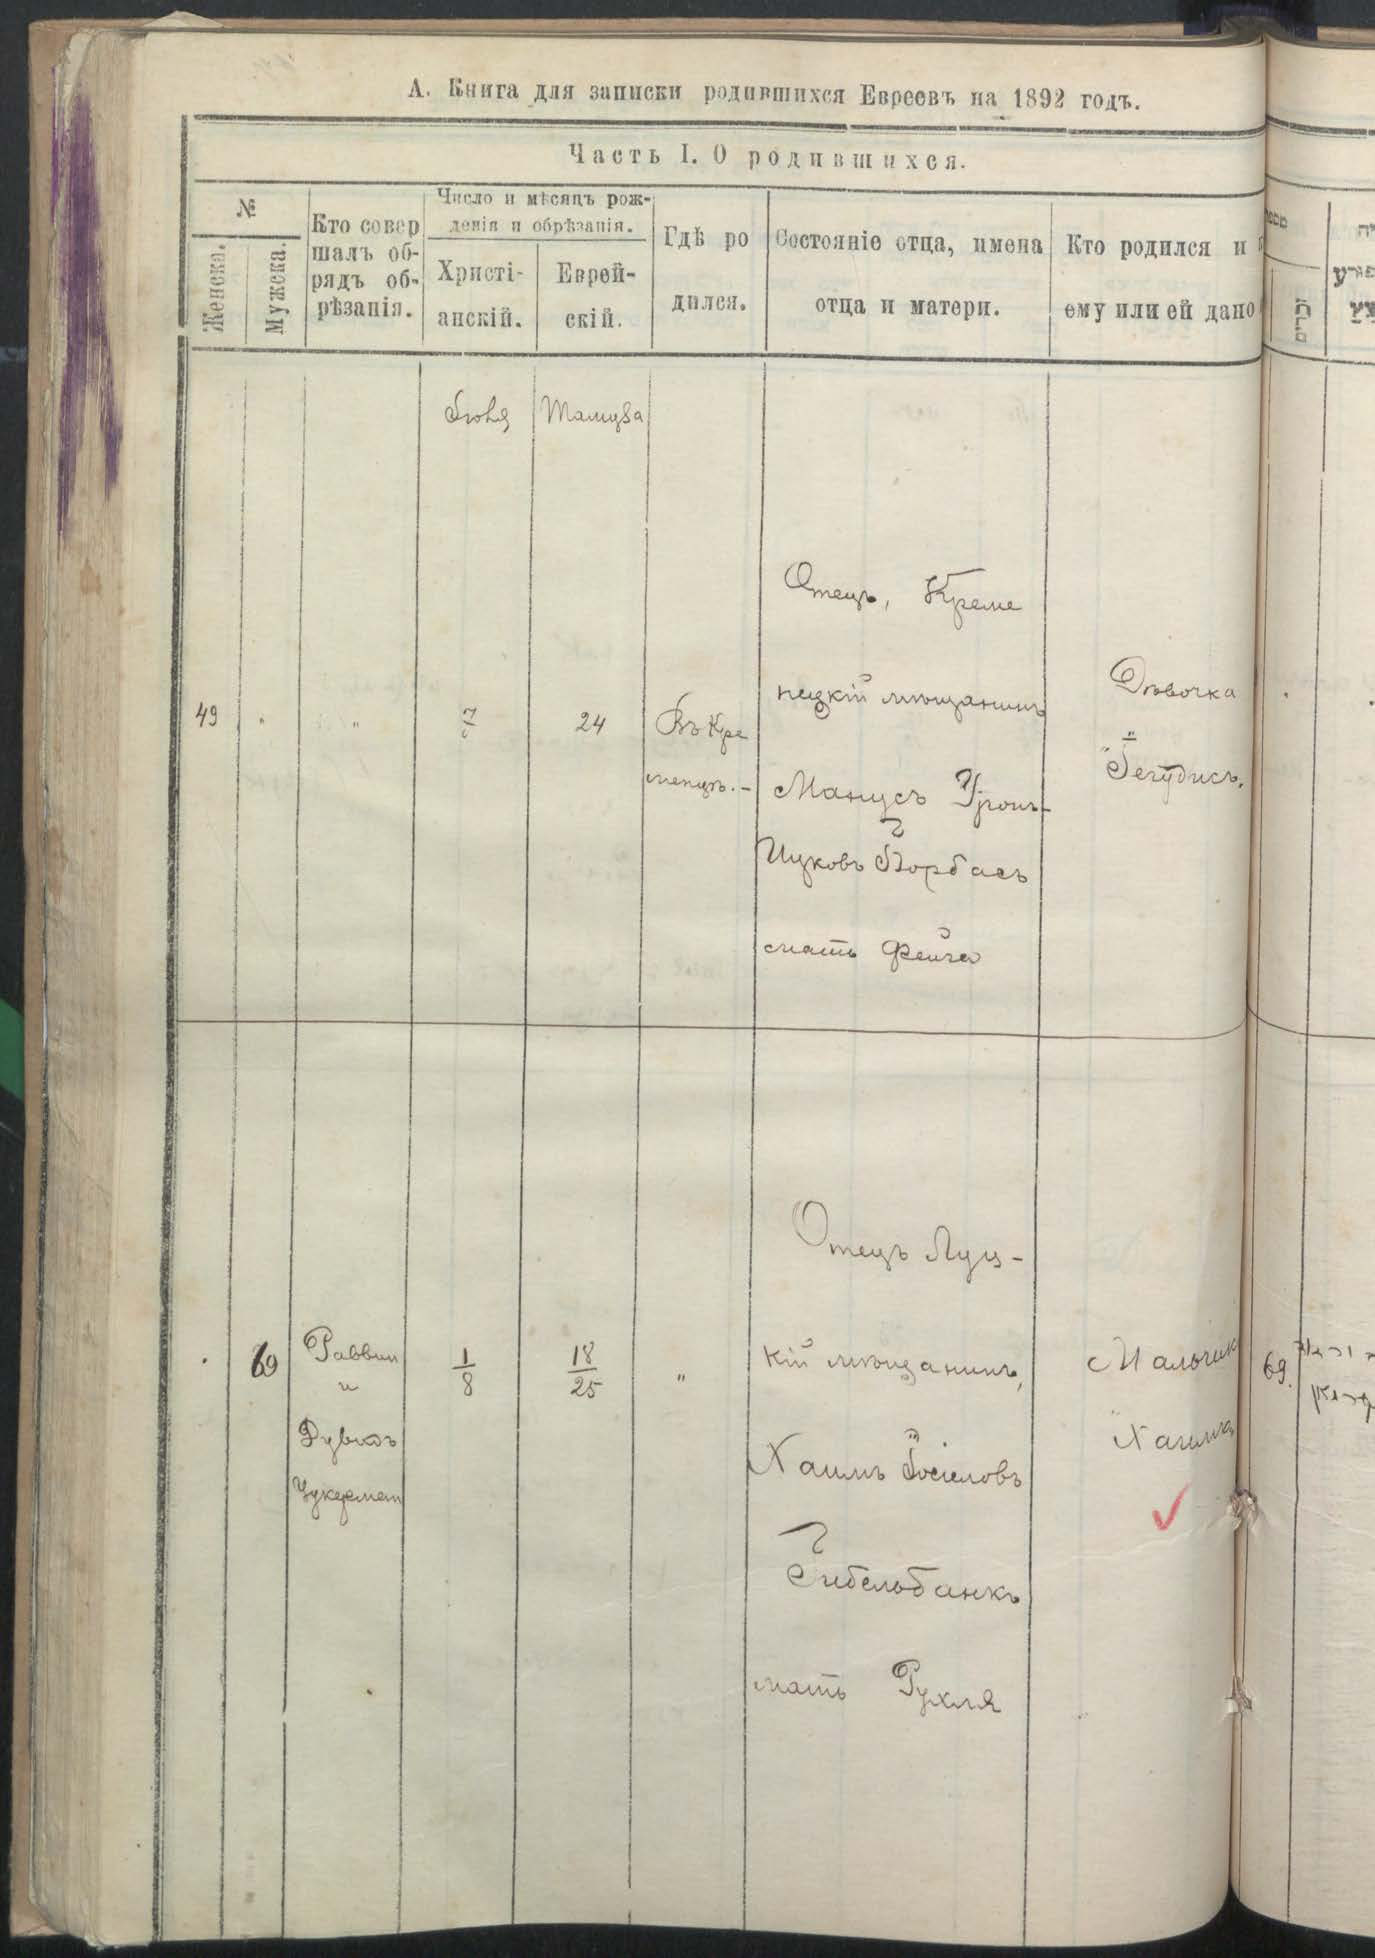 А. Книга для записки родившихся Евреевъ на 1892 годъ.
Часть I. О родившихся.
№
Женска.
Мужска.
Кто совер
шалъ об-
рядъ об-
рѣзанія.
Число и мѣсяцъ рож-
денія и обрѣзанія.
Христі-
анскій.
Еврей-
скій.
Гдѣ ро
дился.
Состояніе отца, имена
отца и матери.
Кто родился и
ему или ей дано
זכרים
Іюля
Тамуза
49
"
7
24
Въ Кре
менцѣ.-
Отецъ, Креме
нецкій мѣщанинъ
Манусъ
Ицковъ Борбасъ
мать Фейга
Дѣвочка
"Іегудисъ.
69
Раввин
и
Дувидъ
Цукерман
1
8
18
25
"
Отецъ Луц-
кій мѣщанинъ,
Хаимъ Іосіоловъ
мать Рухля
Мальчик
69.